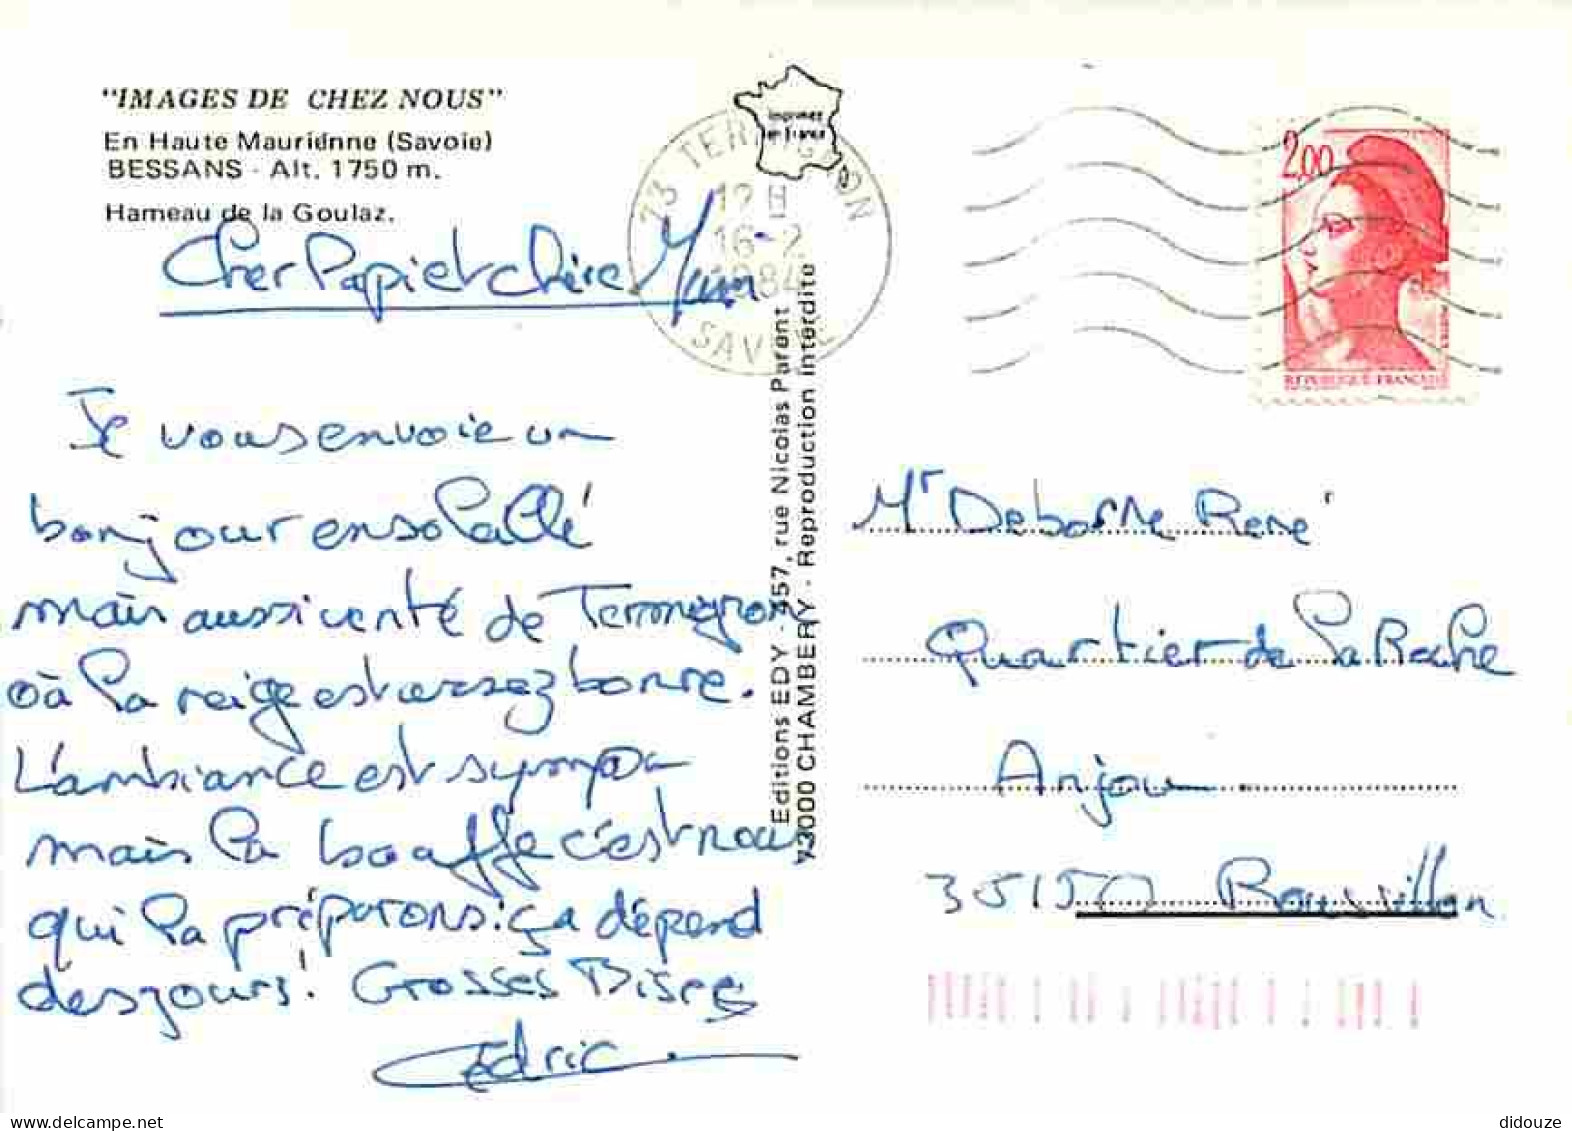 "IMAGES DE CHEZ NOUS"
En Haute Mauriénne (Savoie)
BESSANS - Alt. 1750 m.
Hameau de la Goulaz.
Imprimé
en France
73 TERMIGNON
12H
16-2
1984
SAVOIE
2,00
REPUBLIQUE FRANÇAISE
Cher Papi et chère Mam
Je vous envoie un
bonjour ensolallé
mais aussi venté de Termignon
où la neige est assez bonne.
L'ambiance est sympa
mais la bouffe c'est nous
qui la préparons: ça dépend
des jours! Grosses Bises
Cédric
Editions EDY - 457, rue Nicolas Parent
73000 CHAMBERY - Reproduction interdite
Mr Deborne René
Quartier de la Roche
Anjou
38150 Roussillon
didouze